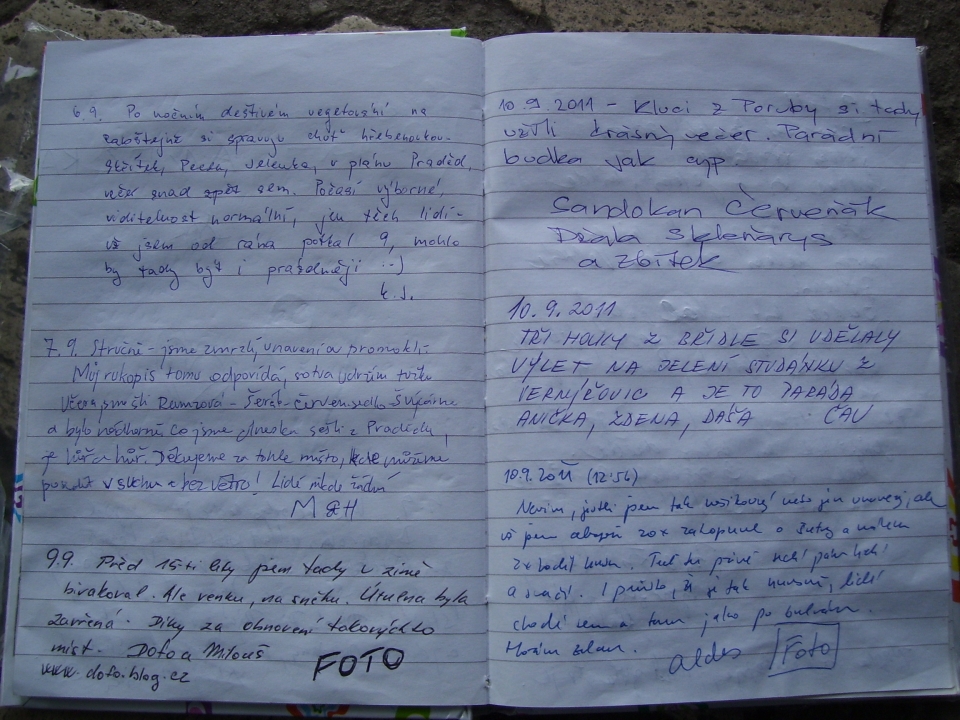 6.9. Po nočním deštivém vegetování na
si spravuju chuť hřebenovkou.
Skřítek, Pecny, Jelenka, v plánu Praděd,
večer snad zpět sem. Počasí výborné,
viditelnost normální, jen těch lidí -
už jsem od rána potkal 9, mohlo
by tady být i prázdněji :-)
k.s.
7.9. Stručně - jsme zmrzlí, unavení a promoklí.
Můj rukopis tomu odpovídá, sotva udržím tužku
Včera jsme šli Ramzová - Šerák - Červen. sedlo - Švýcárna
a bylo nádherně. Co jsme dneska sešli z Pradědu,
je hůř a hůř. Děkujeme za tohle místo, kde můžeme
v suchu a BEZ VĚTRU! Lidi nikde žádní
M & H
9.9. Před 15ti lety jsem tady v zimě
bivakoval. Ale venku, na sněhu. Útulna byla
zavřená. Díky za obnovení takových to
míst. Dofo a Miloš
www.dofo.blog.cz
FOTO
10.9.2011 - Kluci z Poruby si tady
užili krásný večer. Parádní
budka jak cyp.
Sandokan Červeňák
Džala Skleňarys
a zbitek
10.9.2011
TŘI HOLKY Z BŘIDLE SI UDĚLALY
VÝLET NA JELENÍ STUDÁNKU Z
VERNÍŘOVIC A JE TO PARÁDA
ANIČKA, ZDENA, DAŠA ČAU
10.9.2011 (12:56)
Nevím, jestli jsem tak nebo jen unavený, ale
už jsem alespoň 20x zakopnul o a málem
2x hodil. Teď tu právě
a svačí. I přesto, že je tak, lidi
chodí sem a tam jako po bulváru.
Horám zdar.
aldo Foto